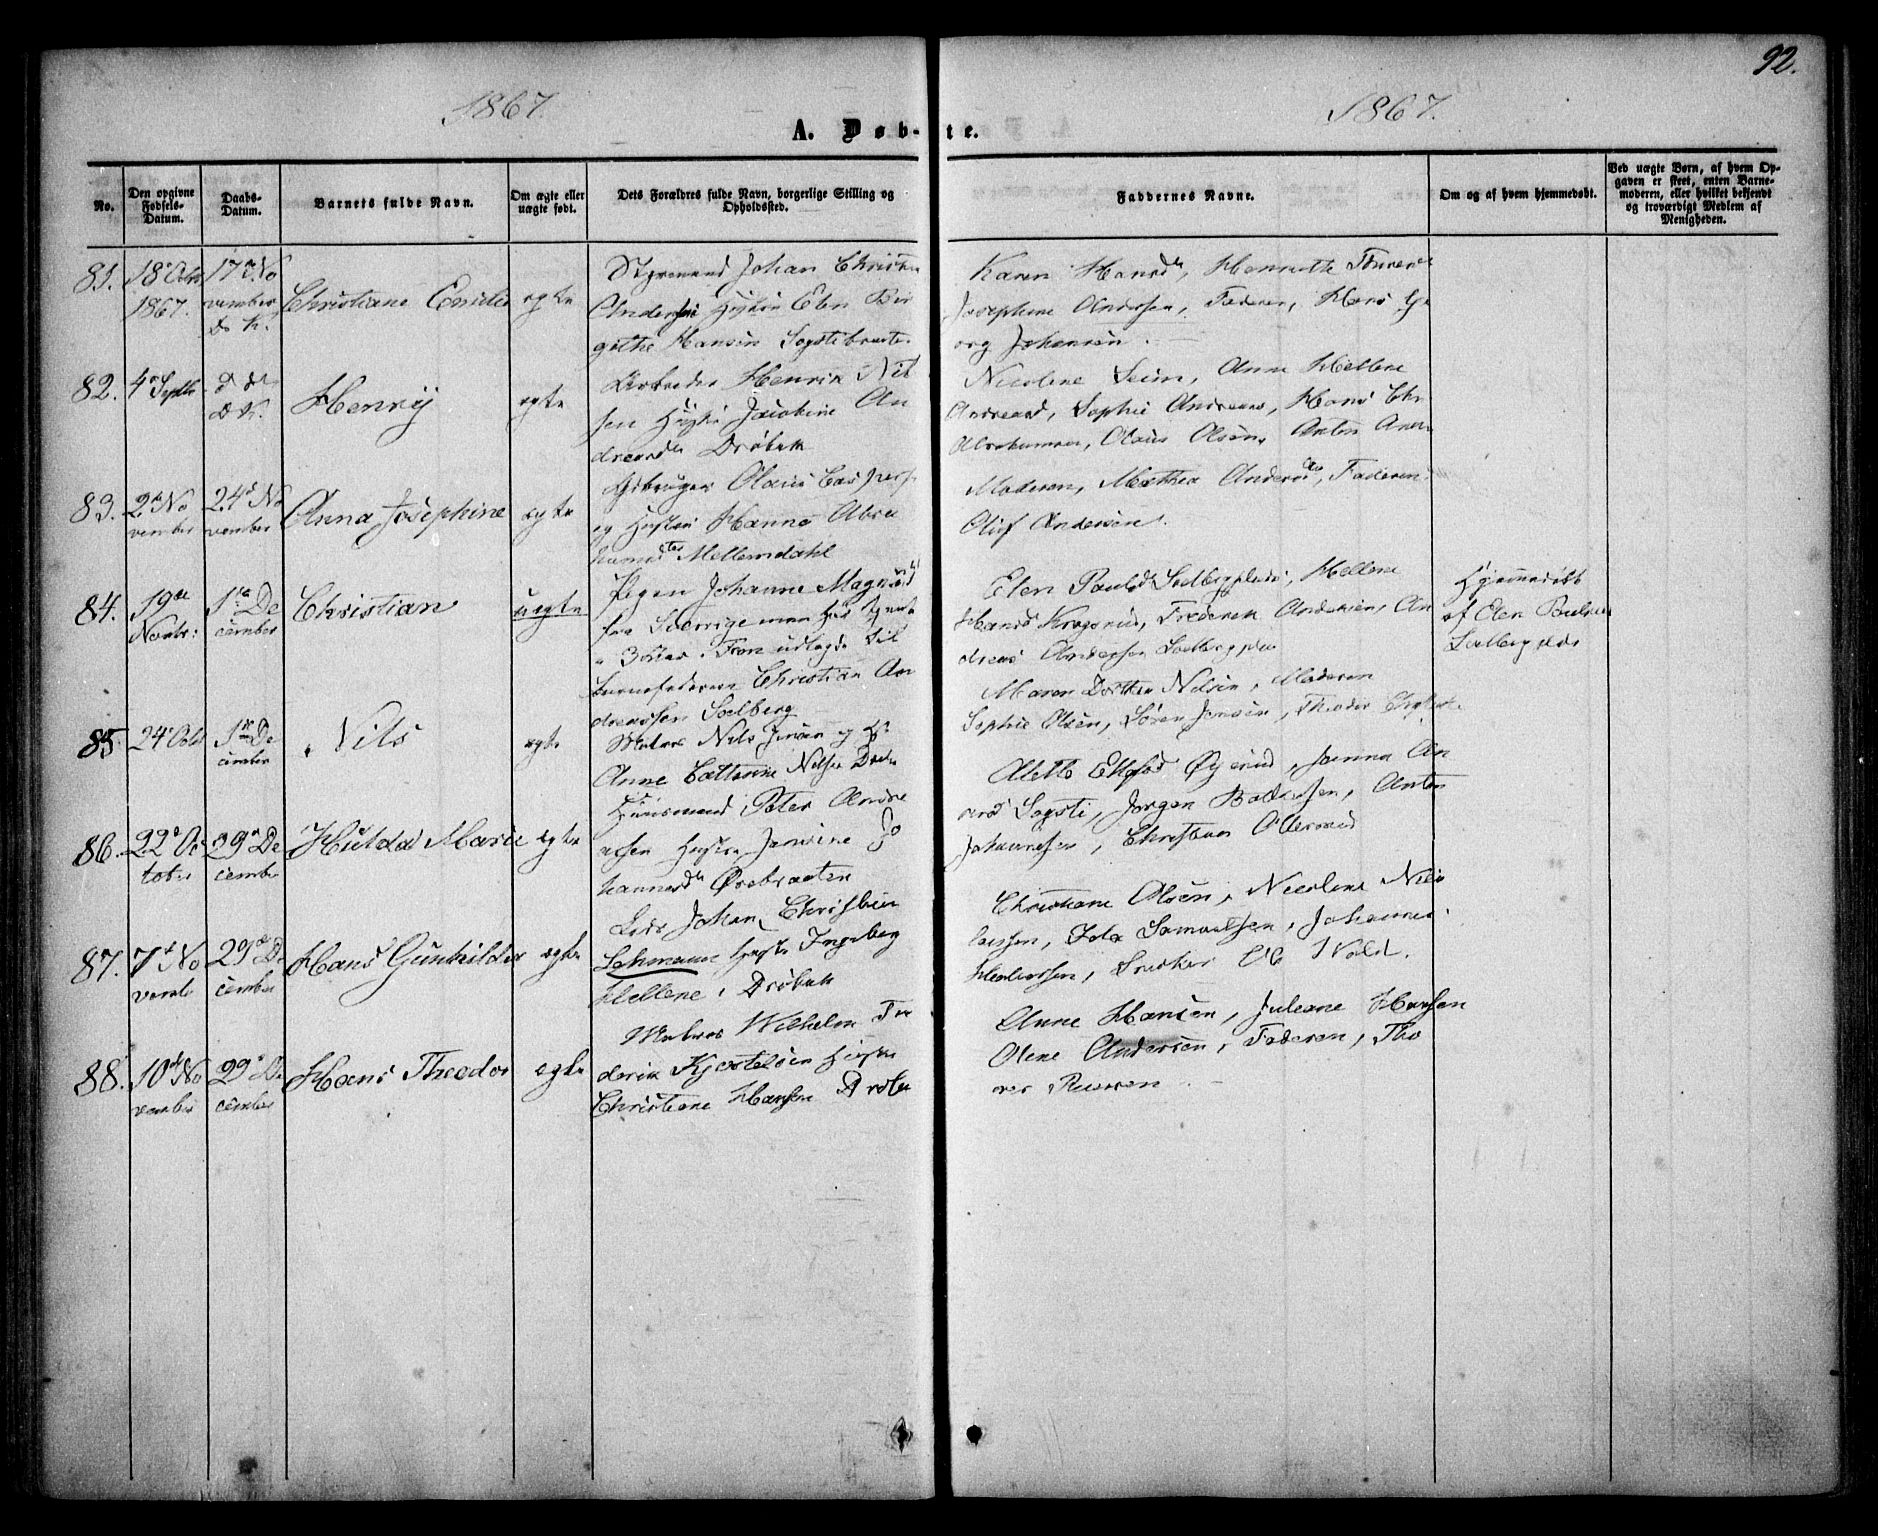 92.
1867.
1867.
A. Døb-te.
No.
Den opgivne Fødsels-Datum.
Daabs-Datum.
Barnets fulde Navn.
Om ægte eller uægte født.
Dets Forældres fulde Navn, borgerlige Stilling og Opholdssted.
Faddernes Navne.
Om og af hvem hjemmedøbt.
Ved uægte Børn, af hvem Opgaven er skeet, enten Barnemoderen, eller hvilket bekjendt og troværdigt Medlem af Menigheden.
81.
18de Octr
1867.
17de No
vember
D. K.
Christiane
ægte
Styrmand Johan Christian
Andersen Hustru Elen Bir
githe Hansen Sogstibraaten
Karen Hansdr, Henriette
Josephine Andersen, Faderen, Hans Ge
org Johansen.
82.
4de Septbr
D. K.
Henrij
ægte
Henrik Nil
sen Hustru Jacobine An
dreasdr Drøbak
Nicoline Seim, Anne Hellene
Andreasd, Sophie Andreasd, Hans Chr
Abrahamsen, Olaus Olsen, Anton
83.
2de No
vember
24de No
vember
Anna Josephine
ægte
Gbruger Olaus Caspers
og Hustru Hanna Abra
hamsdtr Mellemdahl
Moderen, Mathea Andersdtr, Faderen
Oluf Andersen.
84.
19de
Novbr:
1ste De
cember
Christian
uægte
Pigen Johanne Magnusd
fra Sverrige men har tjent
Som udlagde til
barnefaderen Christian An
dreassen Solberg
Elen Paulsd Solbergplads, Hellene
Hansd Krogsrud, Frederik Andersen, An
dreas Andersen Solbergplds
Hjemmedøbt
af Elen Paulsen
Solbergplds
85.
24de Octr
1ste De
cember
Nils
ægte
Matros Nils Jensen og H.
Anne Cathrine Nilsen Drøb.
Maren Dorthea Nilsen, Moderen
Sophie Olsen, Søren Jensen, Theodor
86.
22de Oc
tober
29de De
cember
Hulda Marie
ægte
Huusmand Peter Andre
asen Hustru Jensine Jo
hannesdr Øvrebraaten
Øyerud, Janna An
Sogsti, Jørgen, Anton
Johannesen, Christian Ottersrud
87.
7de No
vemb
29de De
cember
Hans Gunhildus
ægte
Lods Johan Christian
Schmann Hustru Ingeborg
Hellene, Drøbak
Christiane Olsen, Nicoline Nico
laysen, Samuelsen, Johannes
Snedker Wold.
88.
10de No
vember
29de De
cember
Hans Theodor
ægte
Matros Wilhelm Fre
derik Kjertelsen Hustru
Christiane Hansen Drøbak
Anne Hansen, Juleane Hansen
Olene Andersen, Faderen, Tho